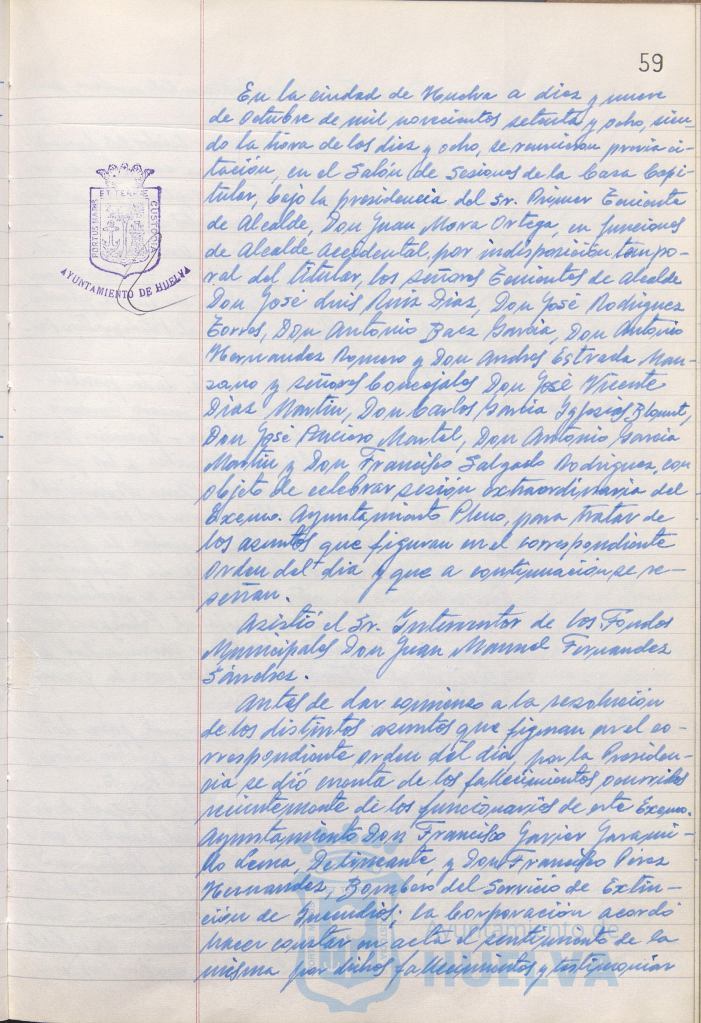 59
En la ciudad de Huelva a diez y nueve
de Octubre de mil novecientos setenta y ocho, sien-
do la hora de los diez y ocho, se reunieron previa ci-
tación, en el Salón de Sesiones de la Casa Capi-
tular, bajo la presidencia del Sr. Primer Teniente
de Alcalde, Don Juan Mora Ortega, en funciones
de Alcalde Accidental, por indisposición tempo-
ral del titular, los señores Tenientes de Alcalde
Don José Luis Ruiz Diaz, Don José Rodriguez
Torres, Don Antonio Baez Garcia, Don Antonio
Hernandez Romero y Don Andres Estrada Man-
zano y señores Concejales Don José Vicente
Diaz Martin, Don Carlos Iglesias
Don José Martel, Don Antonio Garcia
Martin y Don Francisco Salgado Rodriguez, con
objeto de celebrar sesión extraordinaria del
Excmo. Ayuntamiento Pleno, para tratar de
los asuntos que figuran en el correspondiente
orden del dia y que a continuacion se re-
señan.
Asistió el Sr. Interventor de los Fondos
Municipales Don Juan Manuel Fernandez
Sánchez.
Antes de dar comienzo a la resolución
de los distintos asuntos que figuran en el co-
rrespondiente orden del dia, por la Presiden-
cia se dió cuenta de los fallecimientos ocurridos
recientemente de los funcionarios de este Excmo.
Ayuntamiento Don Francisco Javier Jarami-
llo Lema, Delineante, y Don Francisco Pérez
Hernandez, Bombero del Servicio de Extin-
ción de Incendios; la Corporación acordó
hacer constar en acta el sentimiento de la
misma por dichos fallecimientos y testimoniar
PORTUS MARIS
ET TERRAE
CUSTODIA
AYUNTAMIENTO DE HUELVA
Ayuntamiento de
HUELVA